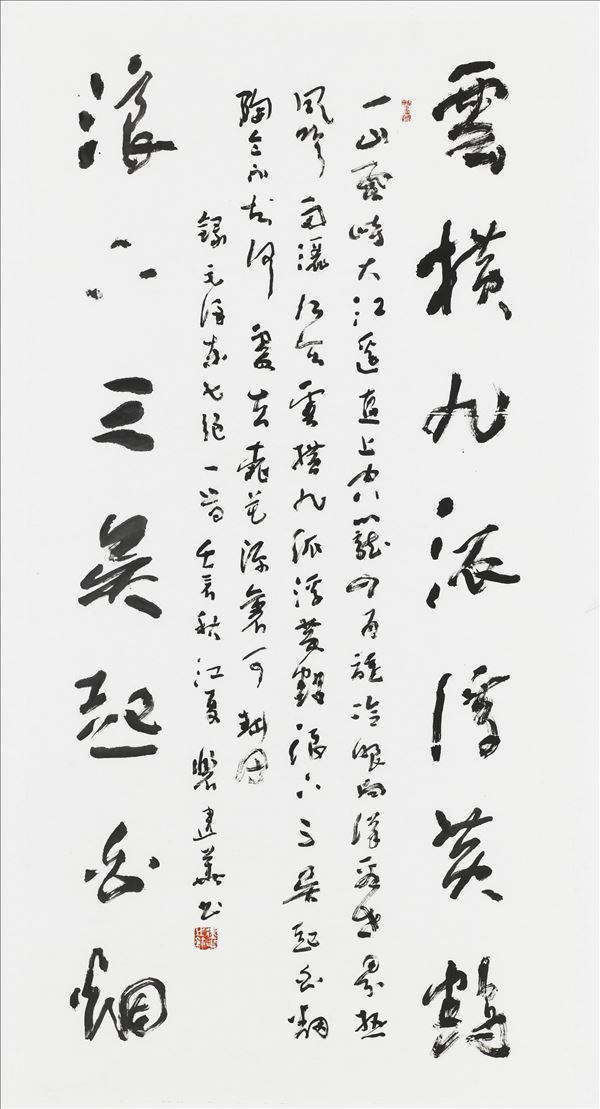 雲橫九派浮黃鶴
一山飛峙大江邊直上蔥蘢四百旋冷眼向洋看世界熱
風吹雨灑江天雲橫九派浮黃鶴浪下三吳起白煙
陶令不知何處去桃花源裏可耕田
錄毛澤東七絕一首壬辰秋江夏建華書
浪下三吳起白烟